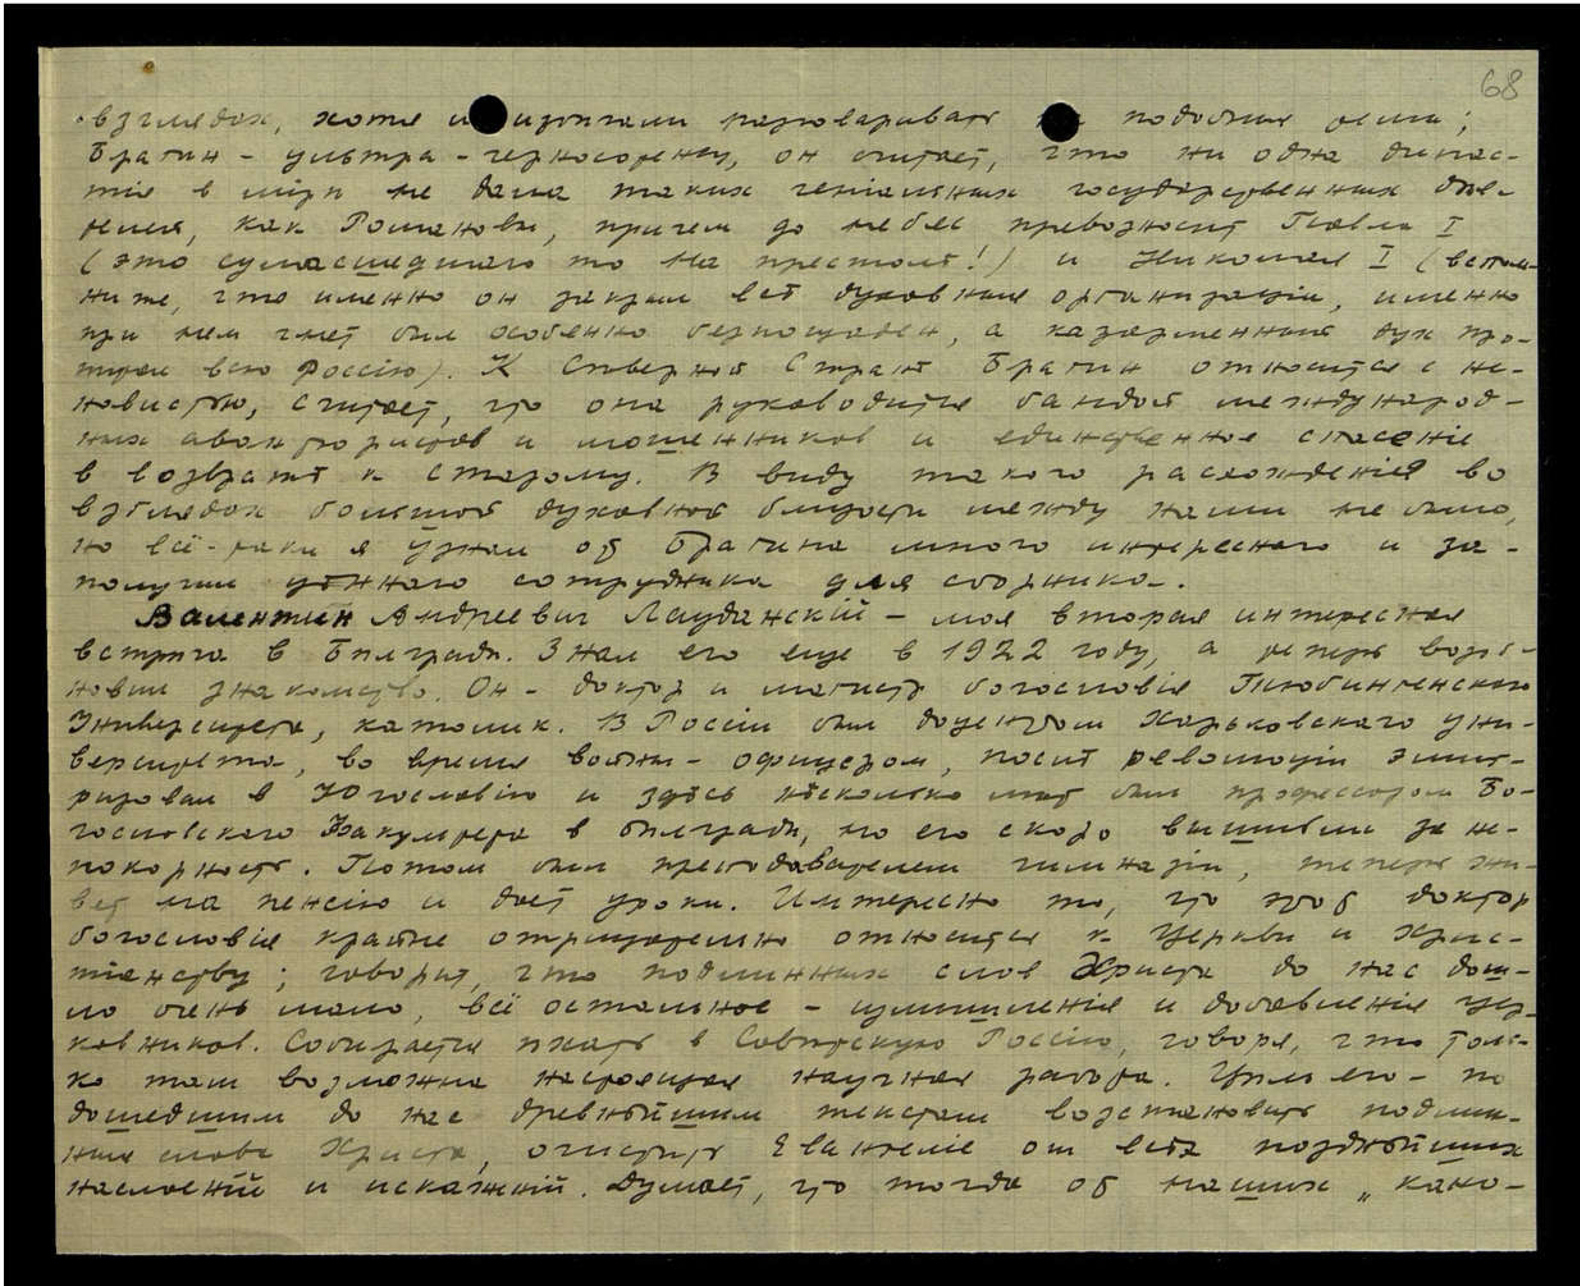 68
взглядах, хотя и избѣгали разговаривать на подобныя темы;
Брагин - ультра-черносотенец, он считает, что ни одна динас-
тія в мірѣ не дала таких геніальных государственных дѣя-
телей, как Романовы, причем до небес превозносит Павла I
(это сумасшедшаго то на престолѣ!) и Николая I (вспом-
ните, что именно он закрыл всѣ духовныя организаціи, именно
при нем гнет был особенно безпощаден, а казарменный дух про-
питал всю Россію). К Сѣверной Странѣ Брагин относится с не-
навистью, считает, что она руководится бандой международ-
ных авантюристов и мошенников и единственное спасеніе
в возвратѣ к старому. В виду такого расхожденія во
взглядах большой духовной близости между нами не было,
но всё-таки я узнал от Брагина много интереснаго и за-
получил цѣннаго сотрудника для сборника.
Валентин Андреевич Лауданскій - моя вторая интересная
встрѣча в Бѣлградѣ. Знал его еще в 1922 году, а теперь возоб-
новил знакомство. Он - доктор и магистр богословія Тюбингенскаго
Университета, католик. В Россіи был доцентом Харьковскаго уни-
верситета, во время войны - офицером, послѣ революціи эмиг-
рировал в Югославію и здѣсь нѣсколько лѣт был профессором Бо-
гословскаго Факультета в Бѣлградѣ, но его скоро вышибли за не-
покорность. Потом был преподавателем гимназіи, теперь жи-
вет на пенсію и дает уроки. Интересно то, что этот доктор
богословія крайне отрицательно относится к Церкви и Хрис-
тіанству; говорит, что подлинных слов Христа до нас дош-
ло очень мало, всё остальное - измышленія и добавленія цер-
ковников. Собирается ѣхать в Совѣтскую Россію, говоря, что толь-
ко там возможна настоящая научная работа. Цѣль его - по
дошедшим до нас древнѣйшим текстам возстановить подлин-
ныя слова Христа, очистить Евангеліе от всѣх позднѣйших
наслоеній и искаженій. Думает, что тогда от наших „кано-